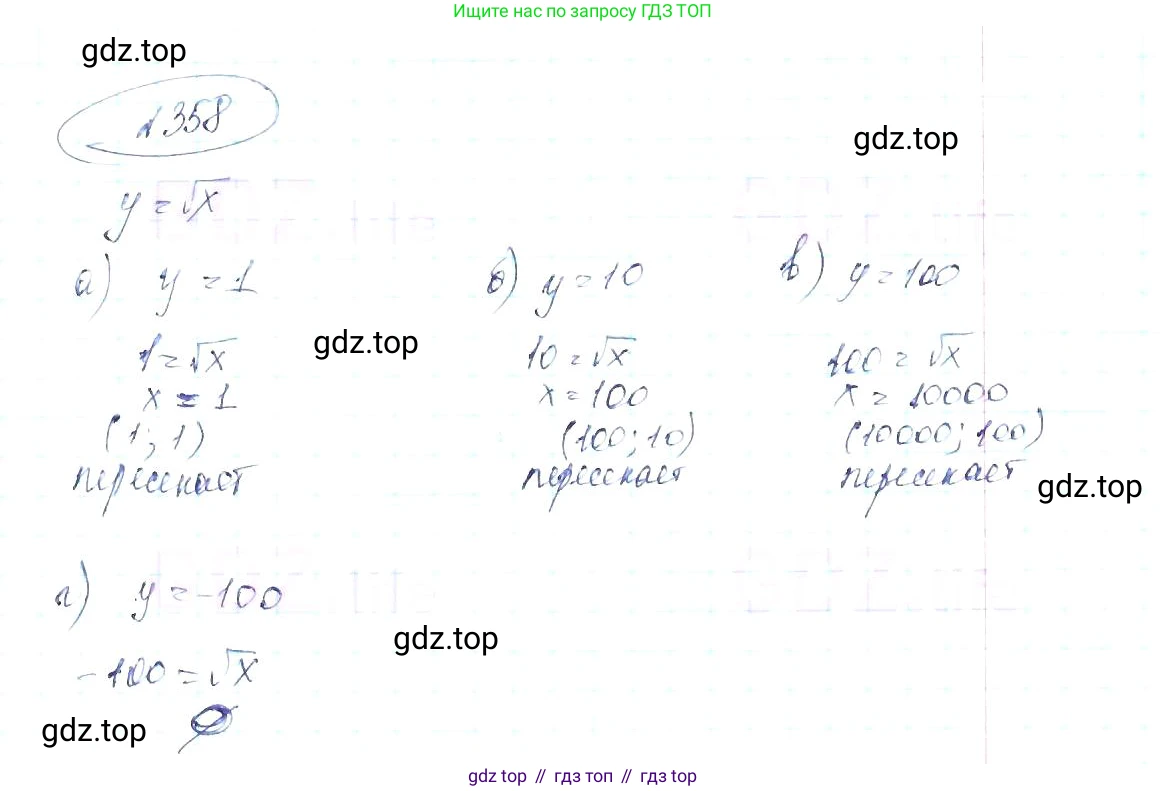 Ищите нас по запросу ГДЗ ТОП
gdz.top
№358
gdz.top
y = √x
а) y = 1
1 = √x
x = 1
(1; 1)
пересекает
gdz.top
б) y = 10
10 = √x
x = 100
(100; 10)
пересекает
в) y = 100
100 = √x
x = 10000
(10000; 100)
пересекает
gdz.top
г) y = -100
-100 = √x
∅
gdz.top
gdz.top
gdz top // гдз топ // гдз top